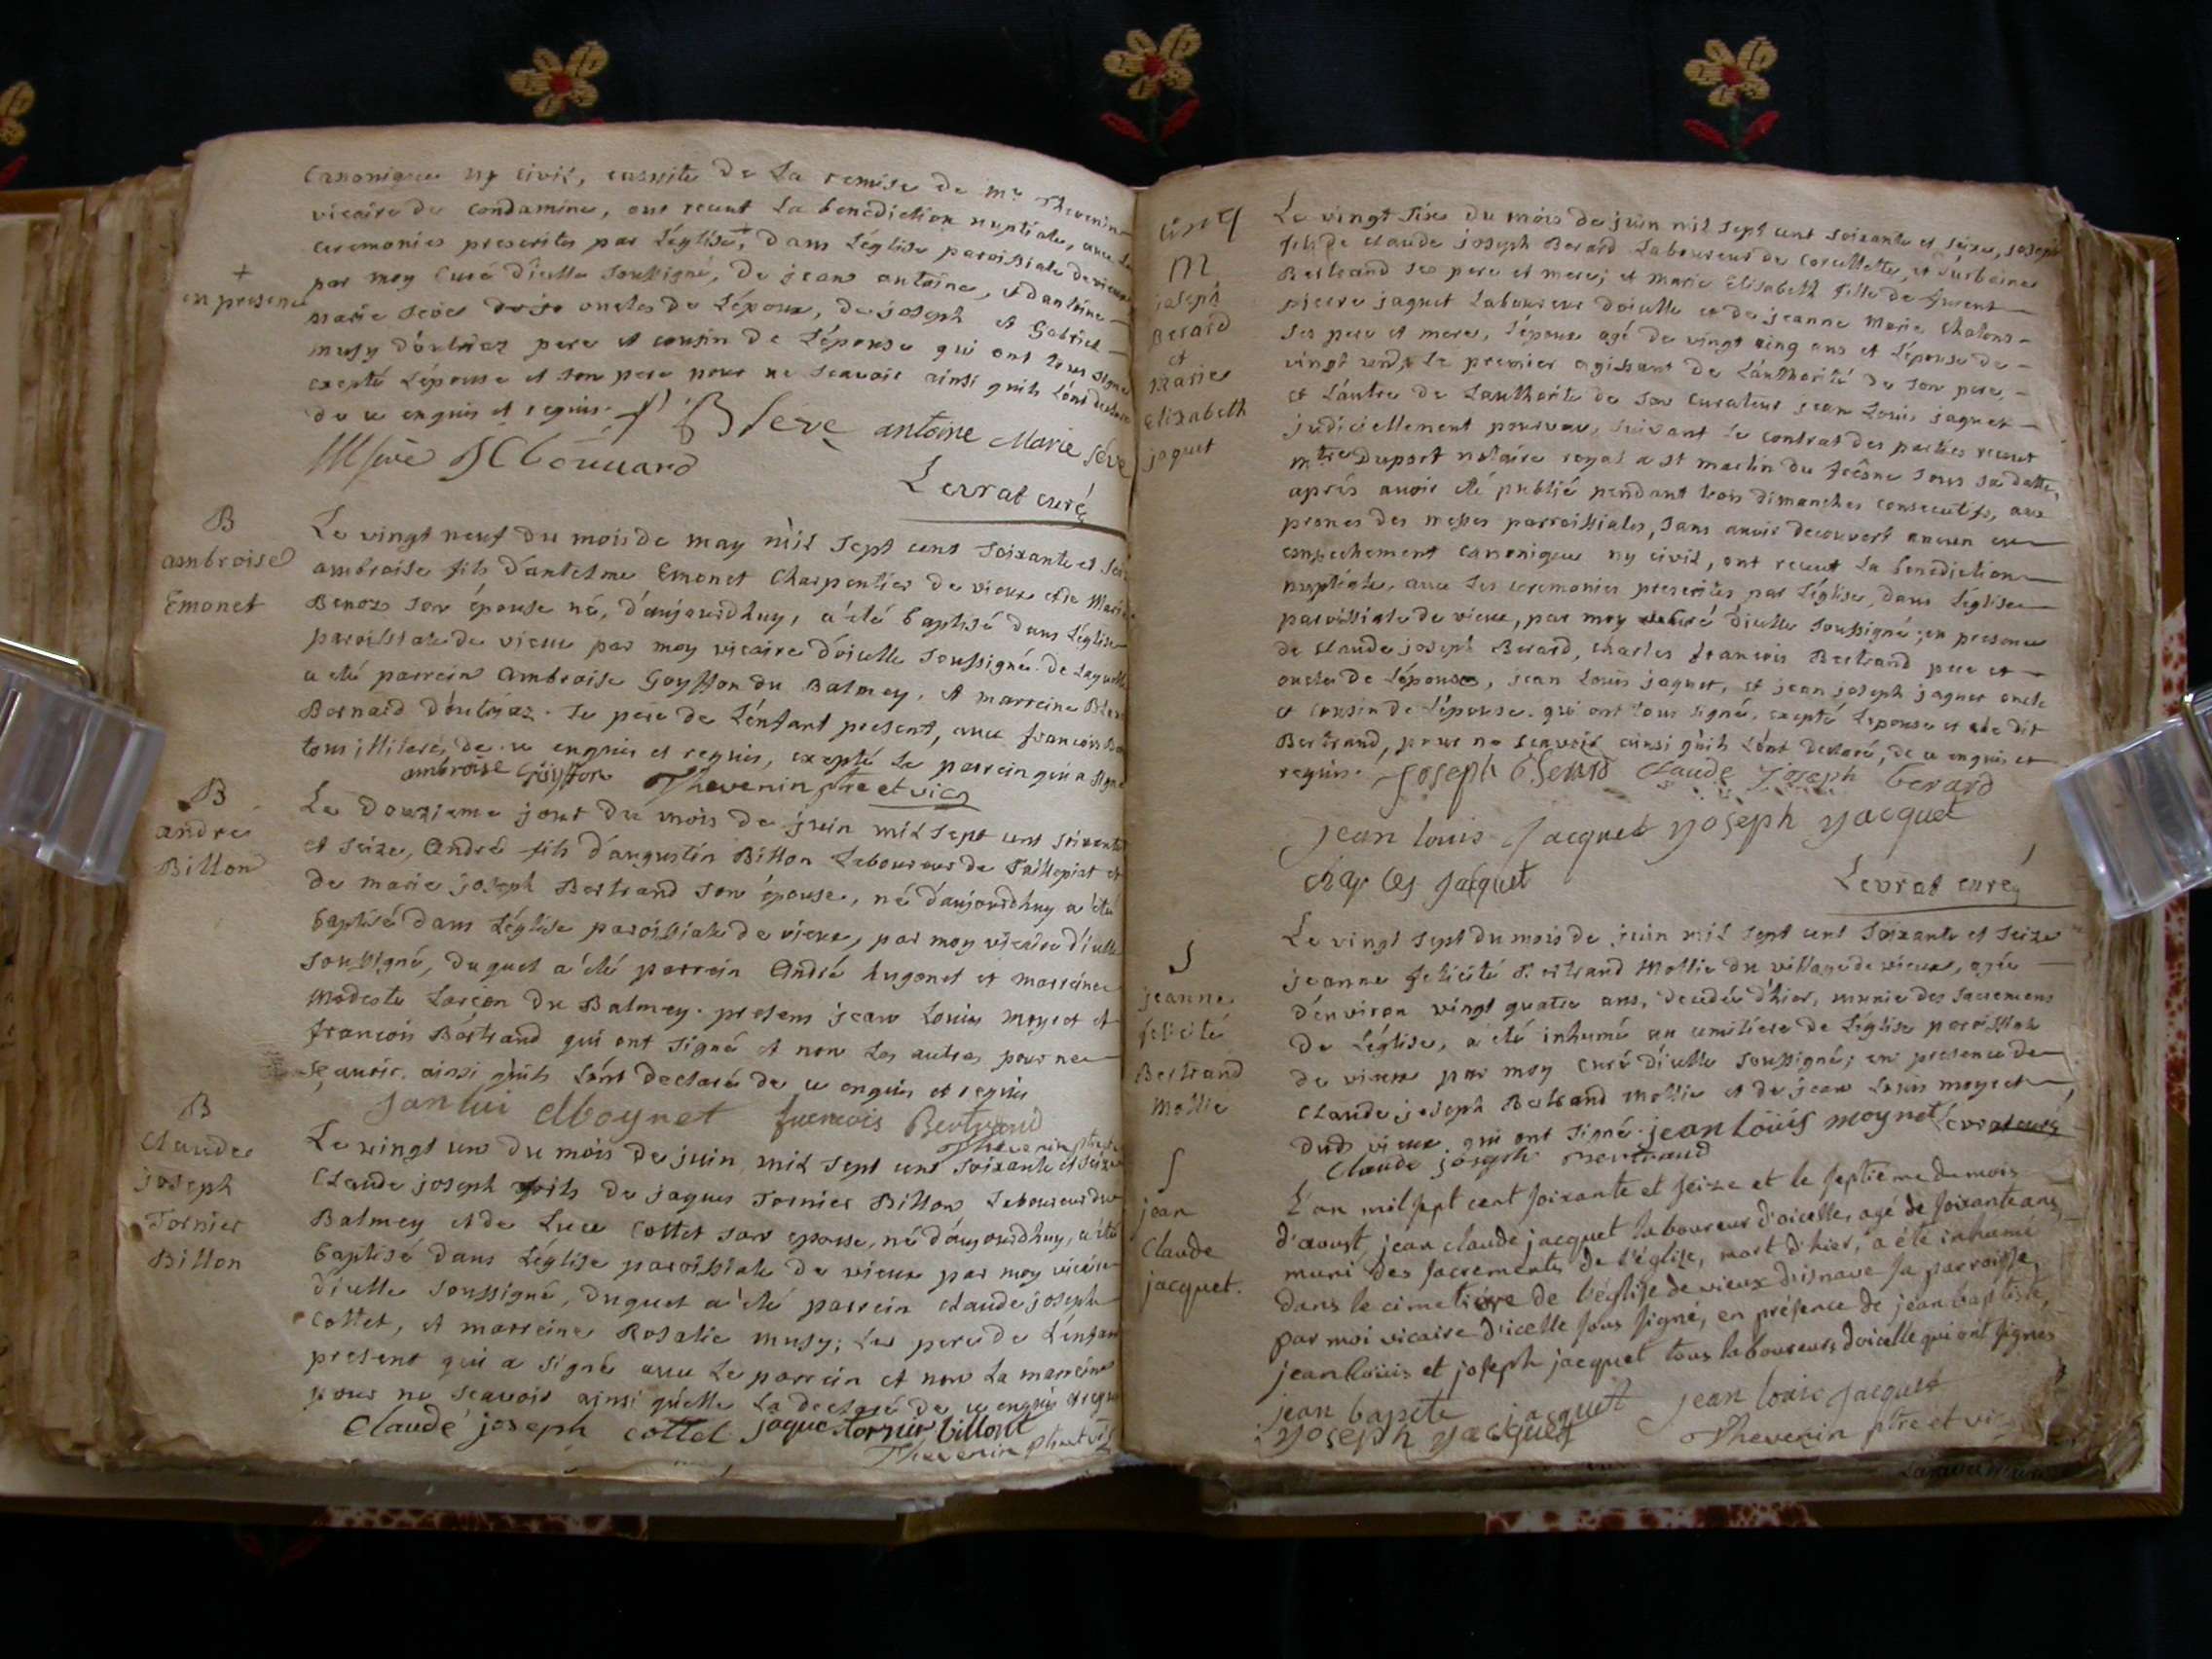 canonique ny civil, ensuite de la remise de mr Thevenin
vicaire de condamine, ont receut la benediction nuptiale, avec les
ceremonies prescrites par l'église, + dans l'église paroissiale de vieux
par moy curé d'icelle soussigné, de jean antoine, et d'antoine
+
en presence
marie seve oncles de l'époux, de joseph et Gabriel
musy d'outriaz pere et cousin de l'épouse qui ont tous signé
excepté l'épouse et son pere pour ne scavoir ainsi quils l'ont declaré
de ce enquis et requis. B Seve antoine Marie séve
Levrat curé
B
ambroise
Emonet
Le vingt neuf du mois de may mil sept cent soixante et seize
ambroise fils d'antelme Emonet Charpentier de vieux et de Marie
Benoz son épouse né, d'aujourdhuy, a été baptisé dans l'église
paroissiale de vieux par moy vicaire d'icelle soussigné. de laquelle
a été parrein ambroise Goyffon du Balmey, et marreine
Bernard d'outriaz. Le pere de l'enfant present, avec francois
tous illiteré, de ce enquis et requis, excepté le parrein qui a signé
ambroise Goyffon Thevenin ptre et vic
B
andre
Billon
Le douzieme jour du mois de juin mil sept cent soixante
et seize, André fils d'augustin Billon Laboureur de Taillepiat et
de marie joseph Bertrand son épouse, né d'aujourdhuy a été
baptisé dans l'église paroissiale de vieux, par moy vicaire d'icelle
soussigné, duquel a été parrein André hugonet et marreine
Modeste Larçon du Balmey. presens jean Louis moynet et
francois Bertrand qui ont signé et non les autres pour ne
sçavoir ainsi quils l'ont declaré de ce enquis et requis
janlui Moynet francois Bertrand
Thevenin ptre
B
Claude
joseph
Tornier
Billon
Le vingt un du mois de juin mil sept cent soixante et seize
Claude joseph fils de jaques Tornier Billon Laboureur du
Balmey et de Luce Cottet son epouse, né d'aujourdhuy, a été
baptisé dans l'église paroissiale de vieux par moy vicaire
d'icelle soussigné, duquel a été parrein claude joseph
Cottet, et marreine Rosalie musy; Le pere de l'enfant
present qui a signé avec Le parrein et non La marreine
pour ne scavoir ainsi qu'elle L'a declaré de ce enquis et requis
Claude joseph cottet jaque tornier billont
Thevenin ptre et vic
M
joseph
Berard
et
Marie
Elizabeth
jaquet
Le vingt six du mois de juin mil sept cent soixante et seize, joseph
fils de claude joseph Berard Laboureur de Corcellette, et d'urbaine
Bertrand ses pere et mere; et marie Elisabeth fille de
pierre jaquet Laboureur d'oicelle et de jeanne Marie Chalons
ses pere et mere, l'époux agé de vingt cinq ans et l'épouse de
vingt un, Le premier agissant de l'authorité de son pere,
et l'autre de l'authorité de son curateur jean Louis jaquet
judiciellement pourveu, suivant le contrat des parties receut
mtre Duport notaire royal a st martin du fresne sous sa datte,
aprés avoir été publié pendant trois dimanches consecutifs, aux
prones des messes parroissiales, sans avoir decouvert aucun
empechement canonique ny civil, ont receut La benediction
nuptiale, avec les ceremonies prescrites par l'église, dans l'église
paroissiale de vieux, par moy curé d'icelle soussigné; en presence
de claude joseph Berard, charles francois Bertrand pere et
oncle de l'époux, jean Louis jaquet, et jean joseph jaquet oncle
et cousin de l'épouse. qui ont tous signé, excepté l'epouse et le dit
Bertrand, pour ne scavoir ainsi quils l'ont declaré, de ce enquis et
requis. joseph Berard Claude joseph berard
jean louis jacquet yoseph yacquet
charles jacquet Levrat curé
S
jeanne
félicité
Bertrand
Mollie
Le vingt sept du mois de juin mil sept cent soixante et seize
jeanne felicité Bertrand Mollie du village de vieux, agée
d'environ vingt quatre ans, decedée d'hier, munie des sacremens
de l'église, a été inhumé au cimitiere de l'église paroissiale
de vieux par moy curé d'icelle soussigné; en presence de
Claude joseph Bertrand mollie et de jean Louis moynet
dud. vieux qui ont signé. jean Loüis moynet Levrat curé
Claude joseph Bertrand
S
jean
Claude
jacquet.
L'an mil sept cent soixante et seize et le septieme du mois
d'aoust, jean claude jacquet laboureur d'oicelle, agé de soixante ans,
muni des sacrements de l'église, mort d'hier, a été inhumé
dans le cimetiere de l'église de vieux d'isnave sa parroisse,
par moi vicaire d'icelle sous signé, en présence de jean baptiste,
jean loüis et joseph jacquet tous laboureurs d'oicelle qui ont signés
jean bapcte jacquet jean louis jacquet
yoseph yacquet Thevenin ptre et vic